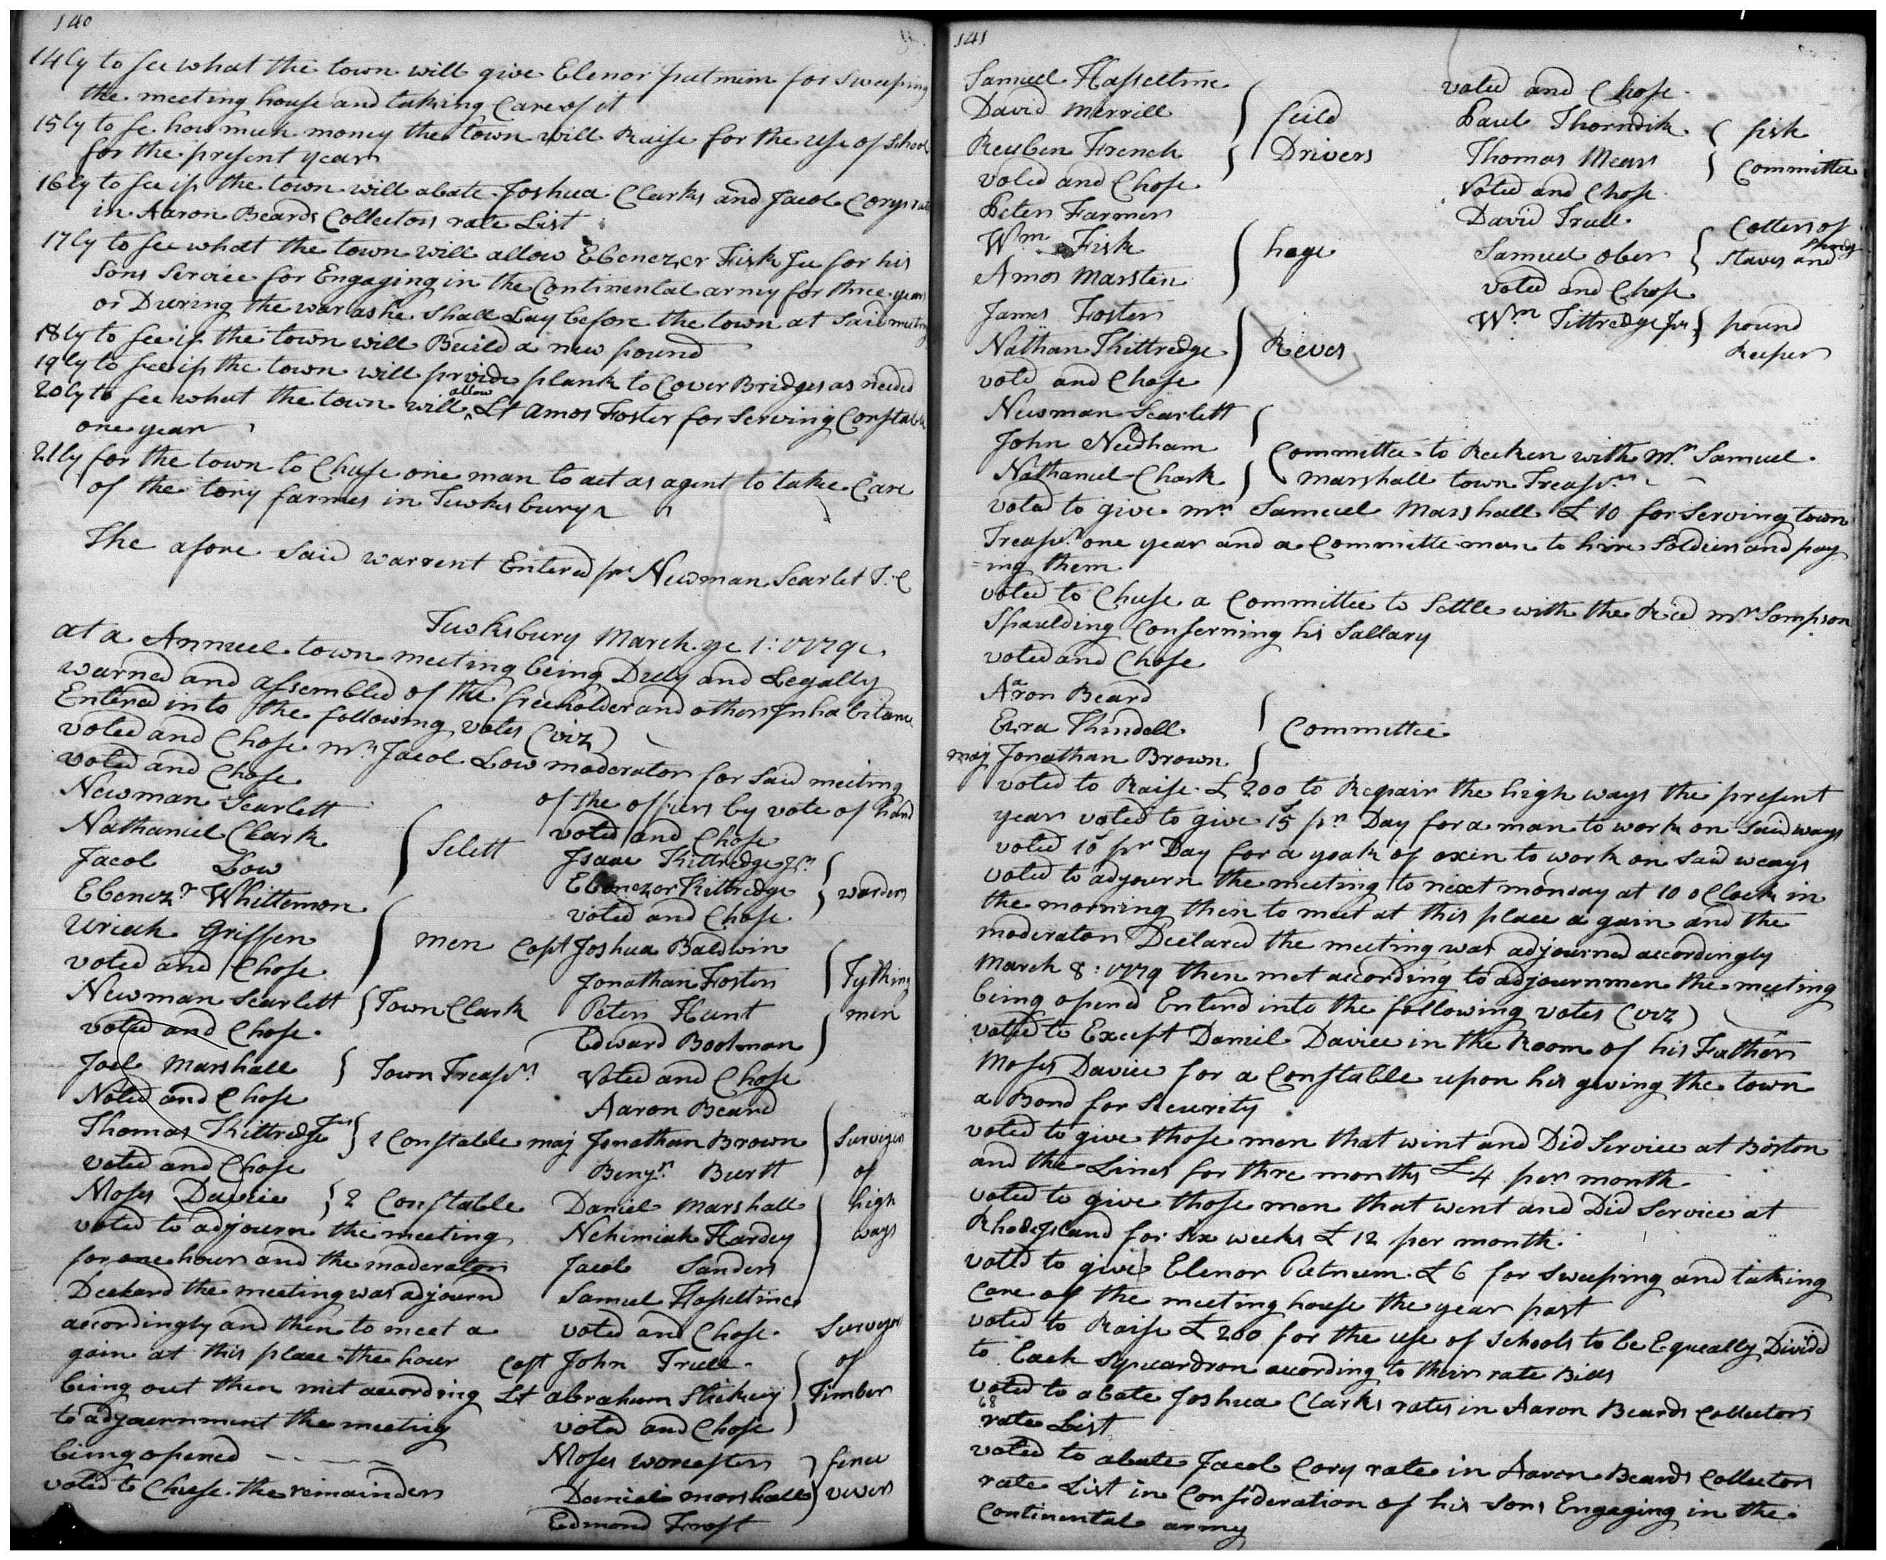 140
14ly to see what the town will give Elenor putmun for Sweeping
the meeting house and taking Care of it
15ly to se how much money the town will Raise for the Use of School
for the present year
16ly to see if the town will abate Joshua Clarks and Jacob Corys rate
in Aaron Beards Collectors rate List
17ly to see what the town will allow Ebenezer Fisk for his
Sons Service for Engaging in the Continental army for three years
or Dureing the war as he Shall Lay before the town at Said meeting
18ly to see if the town will Build a new pound
19ly to see if the town will provide plank to Cover Bridges as needed
20ly to see what the town will allow Lt Amos Foster for Serving Constable
one year
21ly for the town to Chuse one man to act as agent to take Care
of the tory farmes in Tewksbury
The afore Said warrent Entered pr Newman Scarlet T. C
Tewksbury March ye 1: 1779
at a Annuel town meeting being Duly and Legally
warned and assembled of the freeholder and other Inhabitance
Entered into the following votes (viz)
voted and Chose mr Jacob Low moderator for Said meeting
voted and Chose
Newman Scarlett
Nathaniel Clark
Jacob Low
Ebenezr Whittemor
Uriah Griffen
Select
men
voted and Chose
Newman Scarlett } Town Clark
voted and Chose
Joel Marshall } Town Treasr
Voted and Chose
Thomas Kittredge Jur } 1 Constable
voted and Chose
Moses Davice } 2 Constable
voted to adjourn the meeting
for one hour and the moderator
Declard the meeting was adjournd
accordingly and then to meet a
gain at this place the hour
being out then met according
to adjournment the meeting
being opened
voted to Chuse the remainder
of the officers by vote of hand
voted and Chose
Isaac Kittredge Jr
Ebenezer Kittredge
} wardens
voted and Chose
Capt Joshua Baldwin
Jonathan Foster
Peter Hunt
Edward Bootman
Tything
men
Voted and Chose
Aaron Beard
maj Jonathan Brown
Benjn Burtt
Daniel Marshall
Nehimiah Hardey
Jacob Sanders
Samuel Hasseltine
Surveyers
of
high
ways
voted and Chose
Capt John Trull
Lt abraham Stickney
Surveyer
of
Timber
voted and Chose
Moses worcester
Daniel marshall
Edmond Frost
fence
vewers
141
Samuel Hasseltine
David Merrill
Reuben French
feild
Drivers
voted and Chose
Peter Farmer
Wm Fisk
Amos Marsten
James Foster
Nathan Kittredge
hoge
Reves
vote and Chose
Newman Scarlett
John Needham
Nathaniel Clark
Committee to Recken with Mr Samuel
marshall town Treasr
voted and Chose
Paul Thorndik
Thomas Mears
fish
Committee
Voted and Chose
David Trull
Samuel ober
Collers of
Staves and Shingls
voted and Chose
Wm Kittredge Jr } pound
Keeper
voted to give mr Samuel Marshall £ 10 for Serving town
Treasr one year and a Committe man to hire Soldiers and pay
=ing them
voted to Chuse a Committee to Settle with the Rid mr Sampson
Spaulding Conserning his Sallary
voted and Chose
Aaron Beard
Ezra Kindell
maj Jonathan Brown
} Committee
voted to Raise £ 200 to Repair the high ways the present
year voted to give 15s pr Day for a man to work on Said ways
voted 10s pr Day for a yoak of oxin to work on Said weays
voted to adjourn the meeting to next monday at 10 o Clock in
the morning then to meet at this place a gain and the
moderator Declared the meeting was adjourned accordingly
March 8: 1779 then met according to adjournmen the meeting
being opened Enterd into the following votes (viz)
voted to Except Daniel Davice in the Room of his Father
Moses Davice for a Constable upon his giving the town
a Bond for Security
voted to give those men that wint and Did Service at Boston
and the Lines for thre months £ 4 per month
voted to give those men that went and Did Service at
RhodeIsland for Six weeks £ 12 per month
voted to give Elenor Putnum £ 6 for Sweeping and taking
Care off the meeting house the year past
voted to Raise £ 200 for the use of Schools to be Equeally Divided
to Each Squardron according to their rate Bills
voted to abate Joshua Clarks rates in Aaron Beards Collectors
68
rate List
voted to abate Jacob Cory rate in Aaron Beards Collectors
rate List in Consideration of his Sons Engaging in the
Continental army